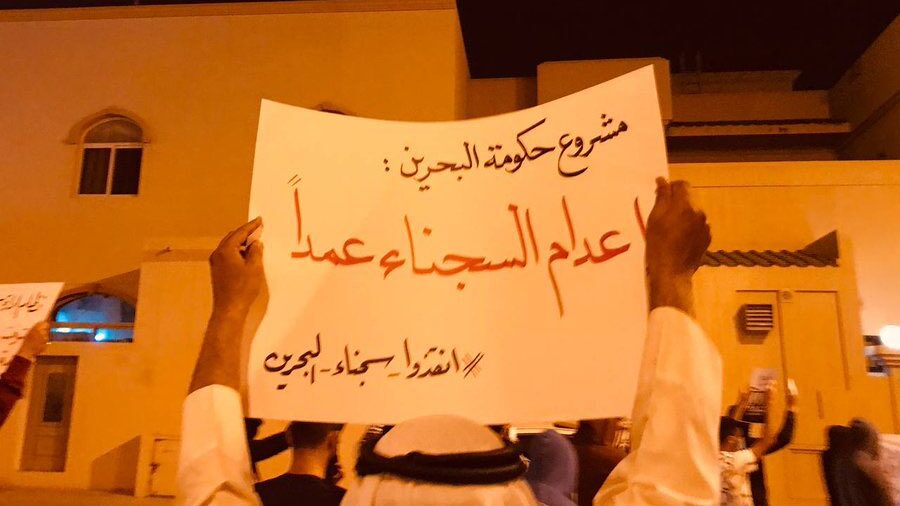 مشروع حكومة البحرين :
اعدام السجناء عمداً
#انقذوا_سجناء_البحرين